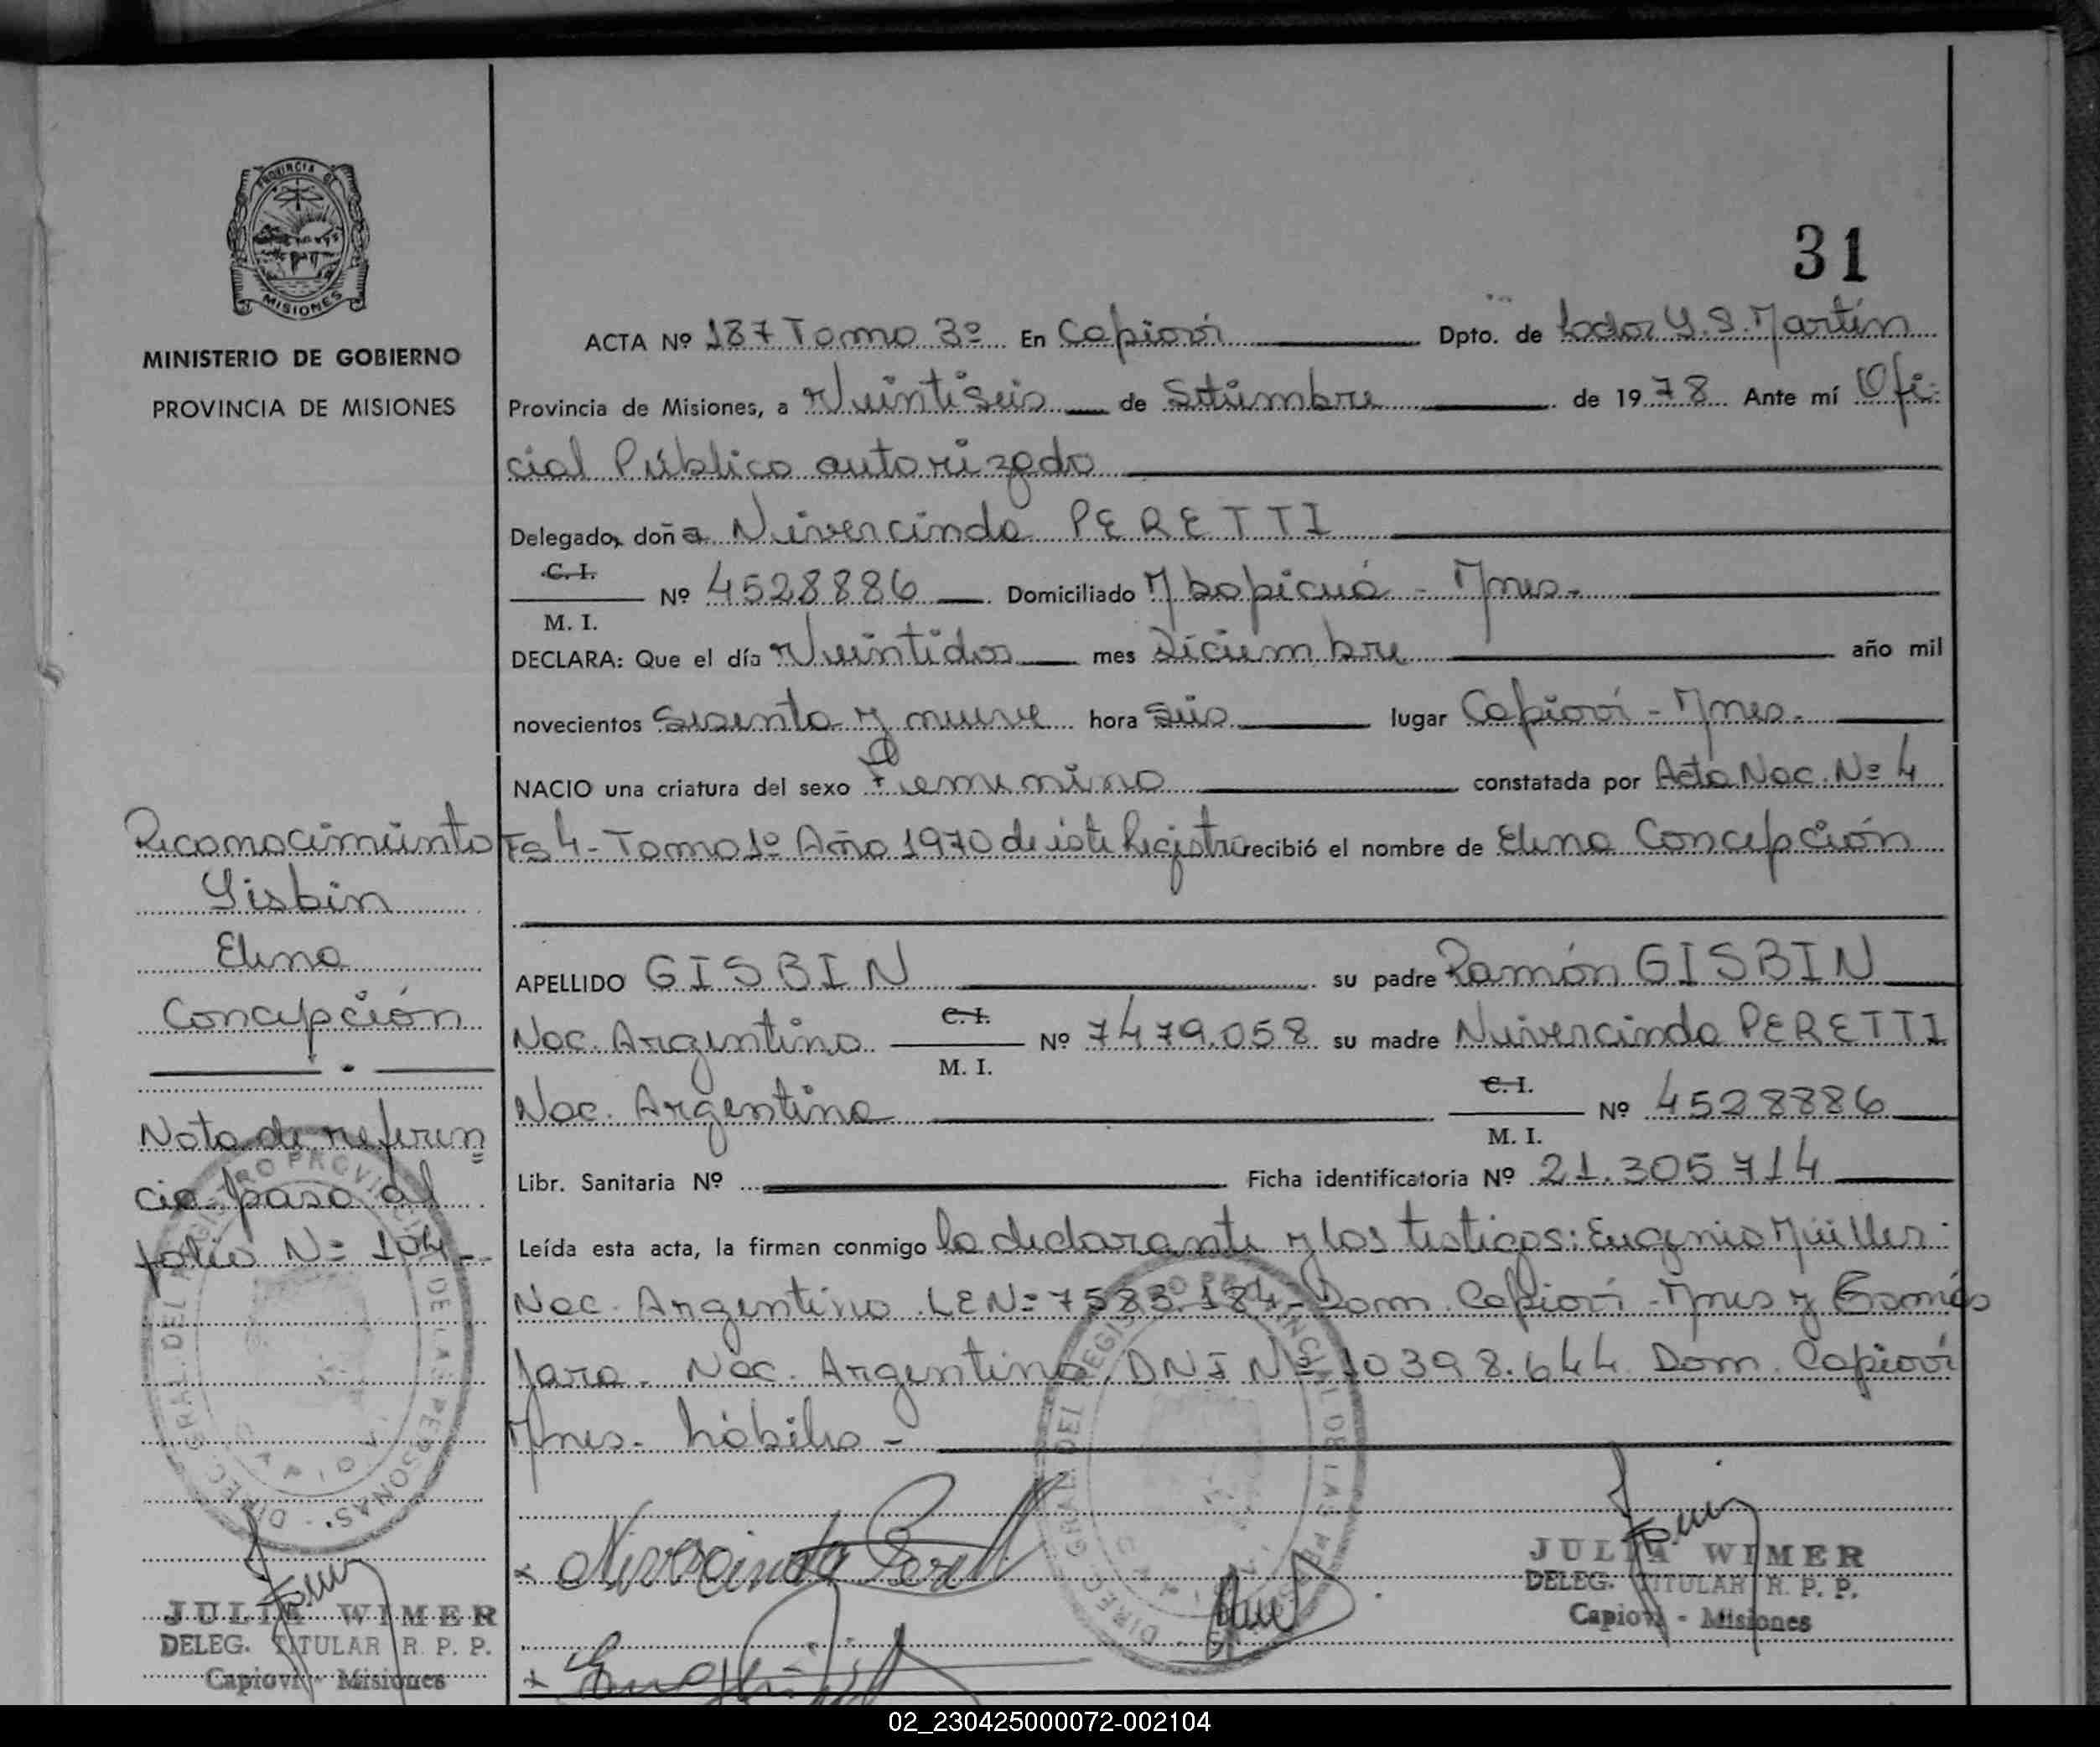 31
PROVINCIA DE
MISIONES
MINISTERIO DE GOBIERNO
PROVINCIA DE MISIONES
ACTA Nº 187 Tomo 3º En Capioví Dpto. de Lodor G.S. Martín
Provincia de Misiones, a Veintiseis de Setiembre de 1978 Ante mí Ofi-
cial Público autorizado
Delegado, doña Neivercinda PERETTI
C. I.
M. I.
Nº 4528886 Domiciliado Mbopicuá - Mnes.
DECLARA: Que el día Veintidos mes Diciembre año mil
novecientos Sesenta y nueve hora Seis lugar Capioví - Mnes.
NACIO una criatura del sexo Femenino constatada por Acta Nac. Nº 4
Fs 4 - Tomo 1º Año 1970 de este Registro recibió el nombre de Elena Concepción
APELLIDO GISBIN su padre Ramón GISBIN
Nac. Argentina C. I. M. I. Nº 7479.058 su madre Neivercinda PERETTI
Nac. Argentina C. I. M. I. Nº 4528886
Libr. Sanitaria Nº Ficha identificatoria Nº 21.305714
Leída esta acta, la firman conmigo la declarante y los testigos: Eugenio Müller
Nac. Argentino LE Nº 7583.184 - Dom. Capioví - Mnes y
Jara - Nac. Argentina, DNI Nº 10398.644 Dom. Capioví
Mnes. hábiles -
Reconocimiento
Gisbin
Elena
Concepción
Nota de referen
cia paso al
folio Nº 104 -
DIREC. GRAL. DEL REGISTRO PROVINCIAL DE LAS PERSONAS
CAPIOVI
JULIA WIMER
DELEG. TITULAR R. P. P.
Capioví - Misiones
Neivercinda Peretti
DIREC. GRAL. DEL REGISTRO PROVINCIAL DE LAS PERSONAS
CAPIOVI
JULIA WIMER
DELEG. TITULAR R. P. P.
Capioví - Misiones
02_230425000072-002104